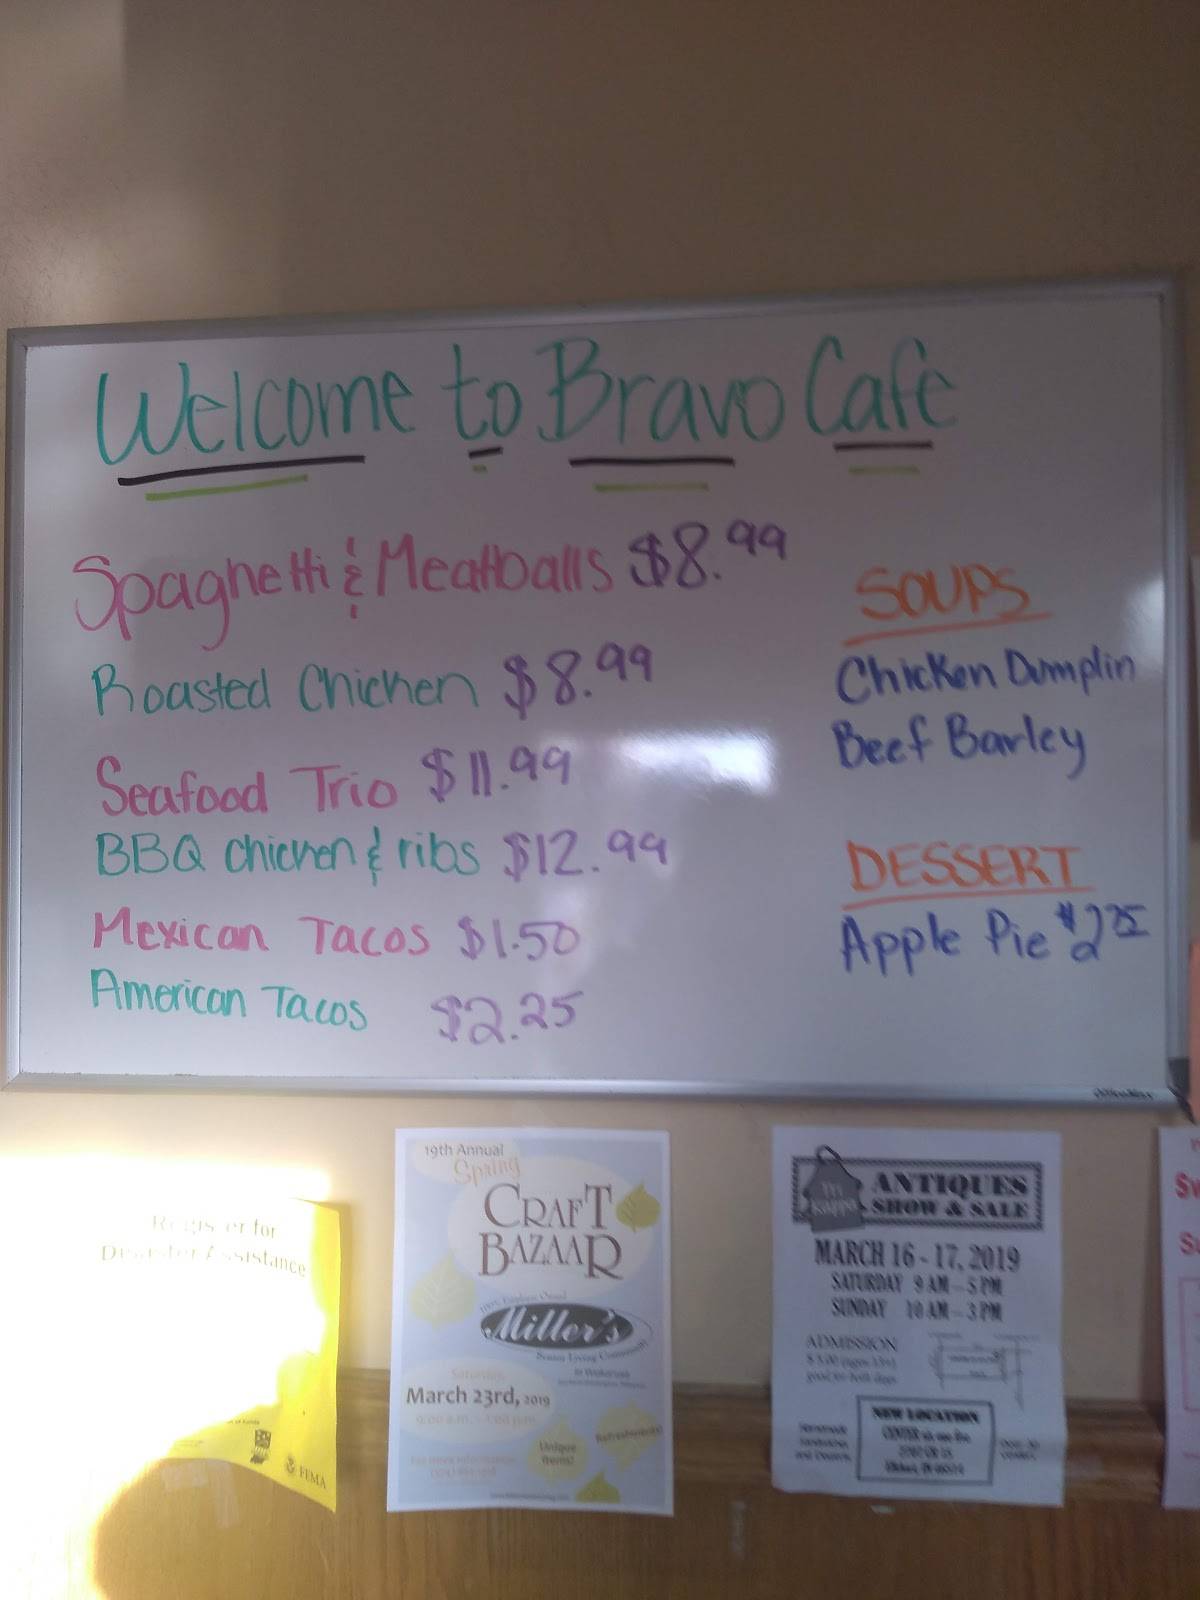 Welcome to Bravo Cafe
Spaghetti & Meatballs $8.99
Roasted Chicken $8.99
Seafood Trio $11.99
BBQ chicken & ribs $12.99
Mexican Tacos $1.50
American Tacos $2.25
SOUPS
Chicken Dumplin
Beef Barley
DESSERT
Apple Pie $2.25
OfficeMax
Register for
Disaster Assistance
FEMA
19th Annual
Spring
CRAFT
BAZAAR
Miller's
Senior Living Community
in Wakarusa
Saturday,
March 23rd, 2019
Unique
Items!
Refreshments!
For more information
Tri
Kappa
ANTIQUES
SHOW & SALE
MARCH 16 - 17, 2019
SATURDAY 9 AM - 5 PM
SUNDAY 10 AM - 3 PM
ADMISSION
good for both days
NEW LOCATION
Sw